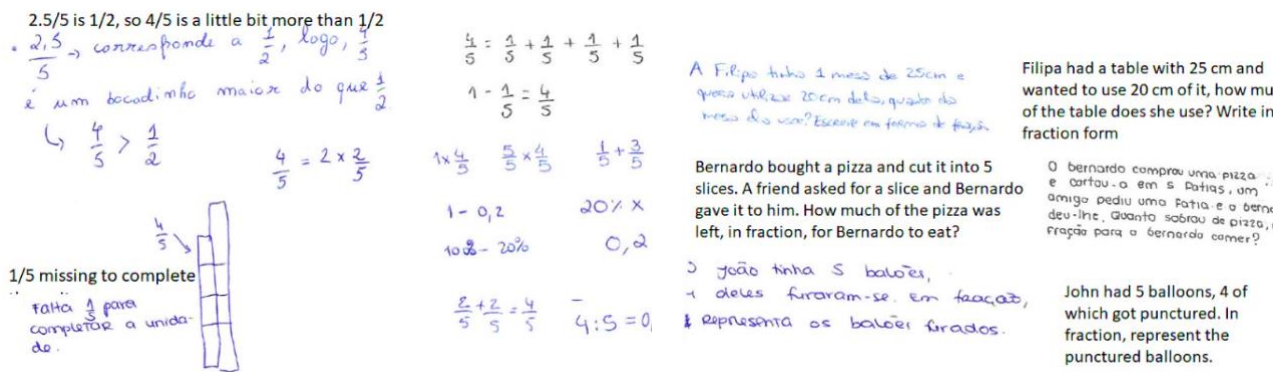 2.5/5 is 1/2, so 4/5 is a little bit more than 1/2
• 2,5/5 → corresponde a 1/2, logo, 4/5
é um bocadinho maior do que 1/2
↳ 4/5 > 1/2
4/5 = 2 x 2/5
4/5
1/5 missing to complete
Falta 1/5 para
completar a unida-
de.
4/5 = 1/5 + 1/5 + 1/5 + 1/5
1 - 1/5 = 4/5
1x 4/5   5/5 x 4/5   1/5 + 3/5
1 - 0,2   20% x
- 20%   0,2
2/5 + 2/5 = 4/5   4:5 = 0,
A Filipa tinha 1 mesa de 25cm e
utilizar 20cm dela, quanto da
mesa ela usa? Escreve em forma de fração
Filipa had a table with 25 cm and
wanted to use 20 cm of it, how mu
of the table does she use? Write in
fraction form
Bernardo bought a pizza and cut it into 5
slices. A friend asked for a slice and Bernardo
gave it to him. How much of the pizza was
left, in fraction, for Bernardo to eat?
O bernardo comprou uma pizza
e cortou-a em 5 fatias, um
amigo pediu uma fatia e o berna
deu-lhe. Quanto sobrou de pizza,
fração para o bernardo comer?
João tinha 5 balões,
deles furaram-se. em fração,
representa os balões furados.
John had 5 balloons, 4 of
which got punctured. In
fraction, represent the
punctured balloons.